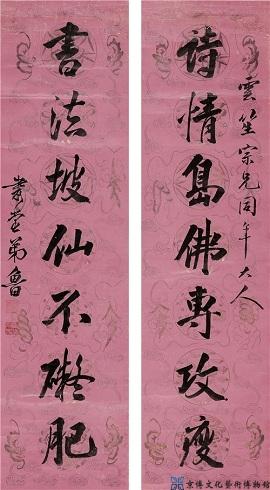 雲笙宗兄同年大人
詩情島佛專攻瘦
書法坡仙不礙肥
弟魯
京博文化藝術博物館